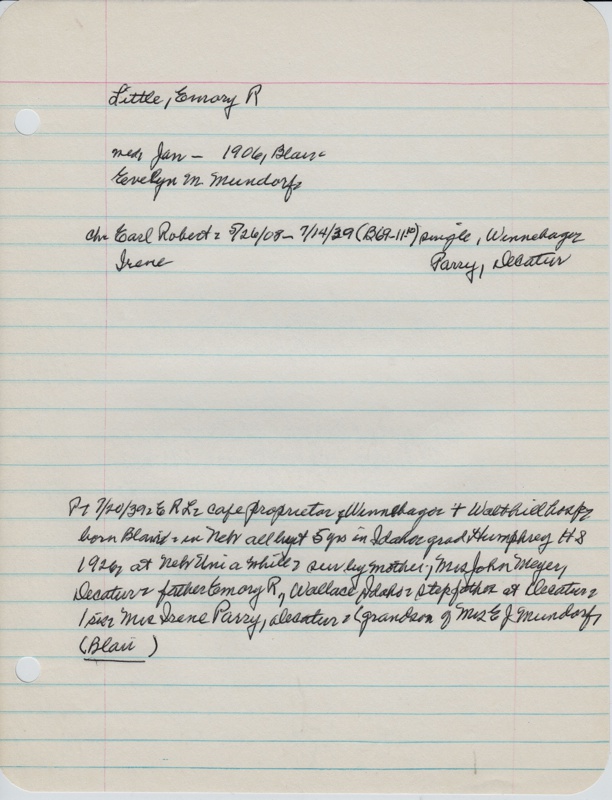 Little, Emory R
med, Jan – 1906, Blair-
Evelyn M. Mundorf,
ch- Earl Robert- 5/26/08 – 7/14/39 (B69-11-) single, Winnebago,
Irene Parry, Decatur
P- 7/20/39- E R L- cafe proprietor, Winnebago + Walthill hosp,
born Blair- in Nebr all but 5 yrs in Idaho- grad Humphrey H S
1926, at Nebr Uni a while- sur by mother, Mrs John Meyer,
Decatur- father Emory R, Wallace, Idaho- stepfather at Decatur-
1 sis- Mrs Irene Parry, Decatur- (grandson of Mrs E J Mundorf,
(Blair)